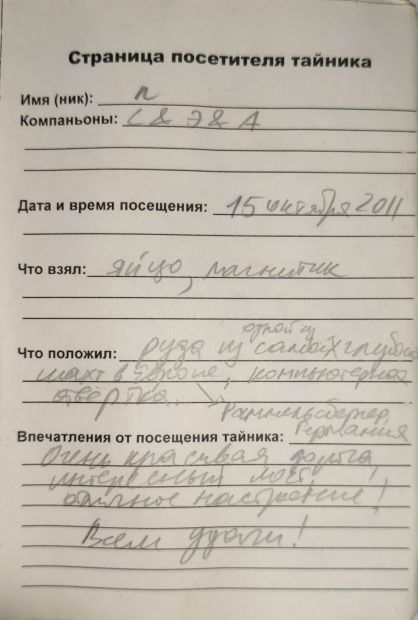 Страница посетителя тайника
Имя (ник): n
Компаньоны: С & Э & А
Дата и время посещения: 15 октября 2011
Что взял: яйцо, магнитик
одной из
Что положил: руда из самых глубоких
шахт в Европе, компьютерная
отвёртка
Раммельсберг,
Германия
Впечатления от посещения тайника:
Очень красивая дорога,
интересный мост,
отличное настроение!
Всем удачи!